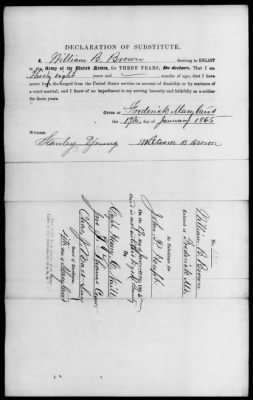 DECLARATION OF SUBSTITUTE.
I, William B. Brown desiring to ENLIST
in the Army of the United States, for THREE YEARS, Do declare, That I am
Thirty eight years and — months of age; that I have
never been discharged from the United States service on account of disability or by sentence of
a court martial; and I know of no impediment to my serving honestly and faithfully as a soldier
for three years.
Given at Frederick Maryland
the 17th day of January 1865
Witness:
Stanley Young William B Brown
William B. Brown
Enlisted at Frederick Md.
As Substitute for
John D.
On the 17 January 1865
Capt. C.
Thomas
Board of Enrollment
4th Dist. of Maryland